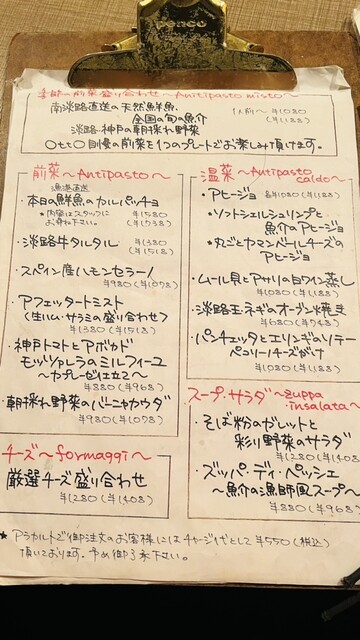 penco
季節の前菜盛り合わせ ~Antipasto misto~
南淡路直送の天然鮮魚、
全国の旬の魚介
1人前~ ¥1080
(¥1188)
淡路・神戸の朝採れ野菜
OttO自慢の前菜を1つのプレートでお楽しみ頂けます。
前菜 ~Antipasto~
漁港直送
・本日の鮮魚のカルパッチョ
*内容はスタッフに
お尋ね下さい。
¥1580
(¥1738)
・淡路牛タルタル
¥1380
(¥1518)
・スペイン産ハモンセラーノ
¥980 (¥1078)
・アフェッタートミスト
(生ハム・サラミの盛り合わせ)
¥1380 (¥1518)
・神戸トマトとアボカド
モッツァレラのミルフィーユ
~カプレーゼ仕立て~
¥880 (¥968)
・朝採れ野菜のバーニャカウダ
¥980 (¥1078)
チーズ ~formaggi~
厳選チーズ盛り合わせ
¥1280 (¥1408)
温菜 ~Antipasto
caldo~
・アヒージョ 各¥1080 (¥1188)
・ソフトシェルシュリンプと
魚介のアヒージョ
*丸ごとカマンベールチーズの
アヒージョ
・ムール貝とアサリの白ワイン蒸し
¥1080 (¥1188)
・淡路玉ネギのオーブン焼き
¥680 (¥748)
・パンチェッタとエリンギのソテー
ペコリーノチーズがけ
¥1080 (¥1188)
スープ・サラダ ~zuppa
insalata~
・そば粉のガレットと
彩り野菜のサラダ
¥1280 (¥1408)
・ズッパ・ディ・ペッシェ
~魚介の漁師風スープ~
¥880 (¥968)
* アラカルトで御注文のお客様にはチャージ代として¥550(税込)
頂いております。予め御了承下さい。